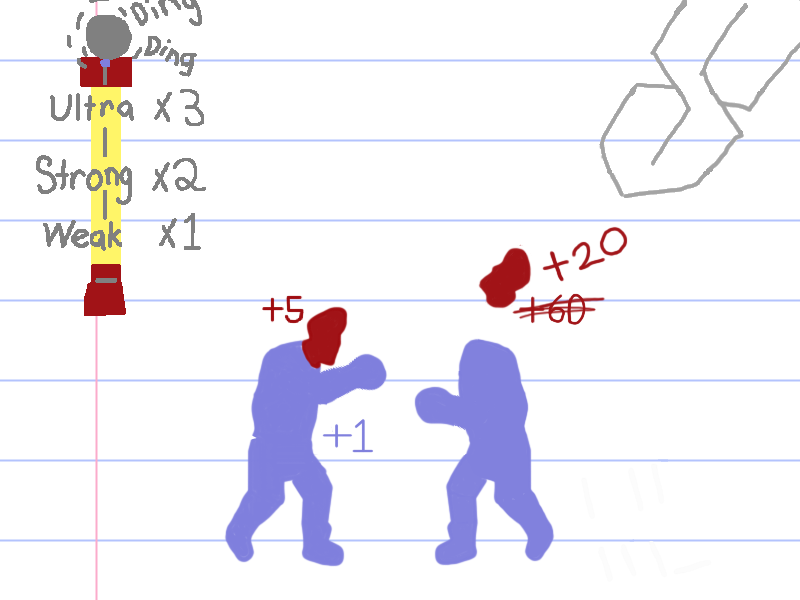 Ding
Ding
Ultra x3
Strong x2
Weak x1
+20
+5
+60
+1